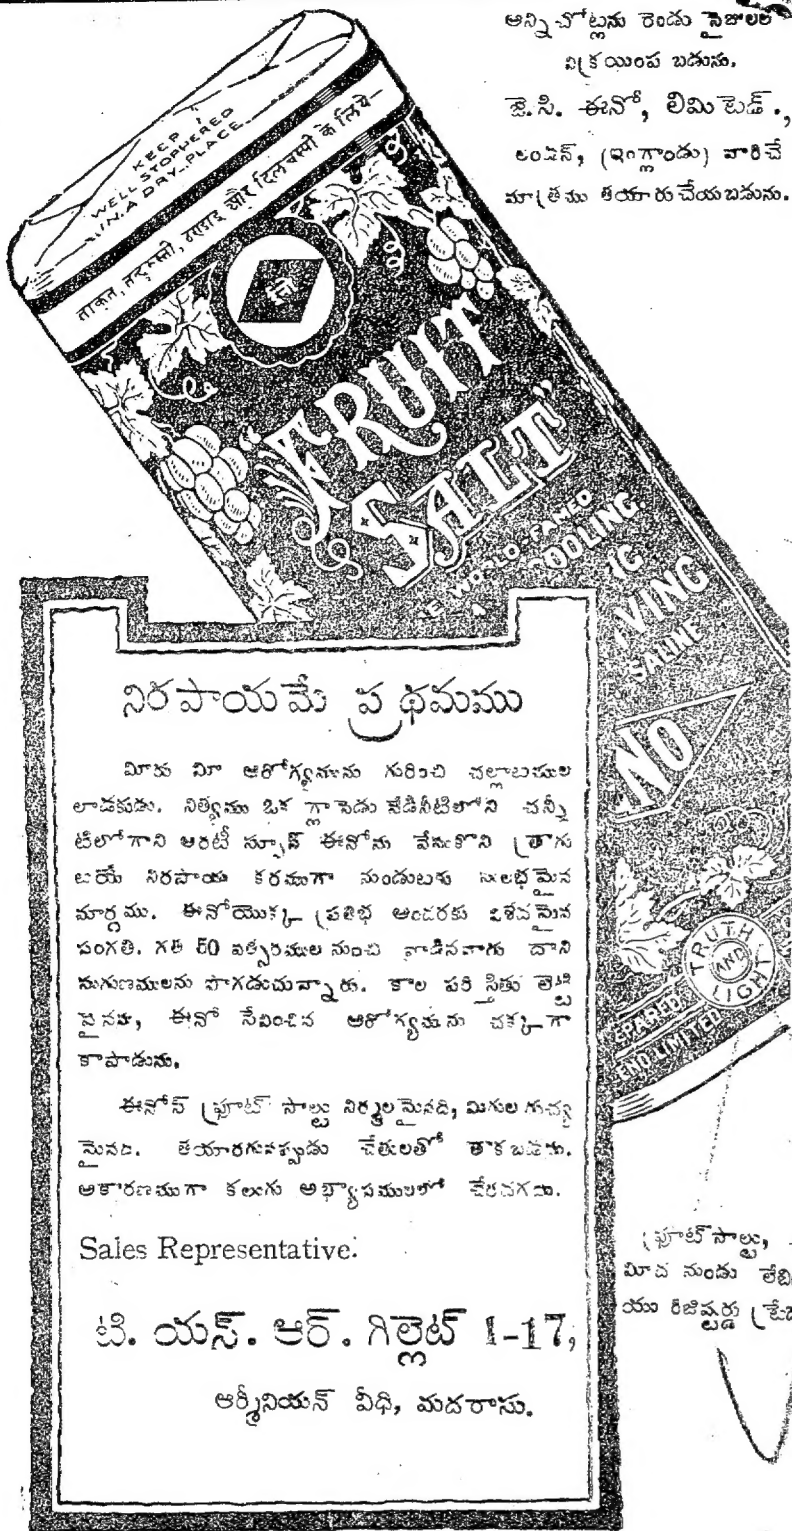 అన్ని చోట్లను రెండు సైజులలో
విక్రయింప బడును.
జె. సి. ఈనో, లిమిటెడ్.,
లండన్, (ఇంగ్లాండు) వారిచే
మాత్రము తయారు చేయబడును.
KEEP
WELL STOPPERED
IN A DRY PLACE
ताकत, तन्दुरुस्ती, और दिलचस्पी के लिये
ईनो
"FRUIT
SALT"
WORLD-FAMED
COOLING
VING
SALINE
NO
TRUTH
AND
LIGHT
EPARED
END LIMITED
నిరపాయమే ప్రథమము
మీరు మీ ఆరోగ్యమును గురించి చల్లాటముల
లాడకుడు. నిత్యము ఒక గ్లాసెడు వేడినీటిలోని చన్నీ
టిలోగాని ఆరటీ స్పూన్ ఈనోను వేసుకొని త్రాగు
టయే నిరపాయ కరముగా నుండుటకు సులభమైన
మార్గము. ఈనోయొక్క ప్రతిభ అందరకు విశేషమైన
సంగతి. గత 50 వత్సరముల నుంచి వాడినవారు దాని
సుగుణములను పొగడుచున్నారు. కాల పరిస్థితు లెట్టి
వైనను, ఈనో సేవించిన ఆరోగ్యమును చక్కగా
కాపాడును.
ఈనోస్ ఫ్రూట్ సాల్టు నిర్మలమైనది, మిగుల
మైనది. తయారగునప్పుడు చేతులతో తాకబడదు.
ఆకారణముగా కలుగు అభ్యాసములలో చేరదగదు.
Sales Representative:
టి. యస్. ఆర్. గిల్లెట్ 1-17,
ఆర్మీనియన్ వీధి, మదరాసు.
ఫ్రూట్ సాల్టు,
మీద నుండు లేబి
యు రిజిష్టర్డు ట్రేడ